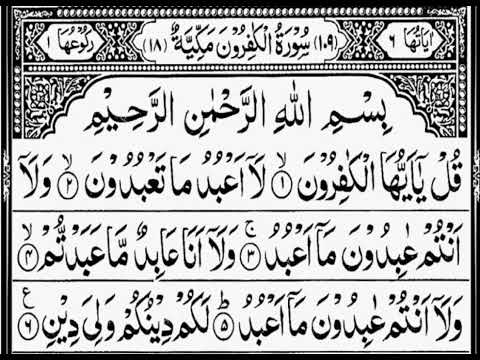 اٰیَاتُهَا ٦ (١٠٩) سُوْرَةُ الْكٰفِرُوْنَ مَكِّیَّةٌ (١٨) رُكُوْعُهَا ١
بِسْمِ اللّٰهِ الرَّحْمٰنِ الرَّحِیْمِ
قُلْ یٰۤاَیُّهَا الْكٰفِرُوْنَ ۙ﴿١﴾ لَاۤ اَعْبُدُ مَا تَعْبُدُوْنَ ۙ﴿٢﴾ وَلَاۤ
اَنْتُمْ عٰبِدُوْنَ مَاۤ اَعْبُدُ ۚ﴿٣﴾ وَلَاۤ اَنَا عَابِدٌ مَّا عَبَدْتُّمْ ۙ﴿٤﴾
وَلَاۤ اَنْتُمْ عٰبِدُوْنَ مَاۤ اَعْبُدُ ؕ﴿٥﴾ لَكُمْ دِیْنُكُمْ وَلِیَ دِیْنِ ﴿٦﴾ ع